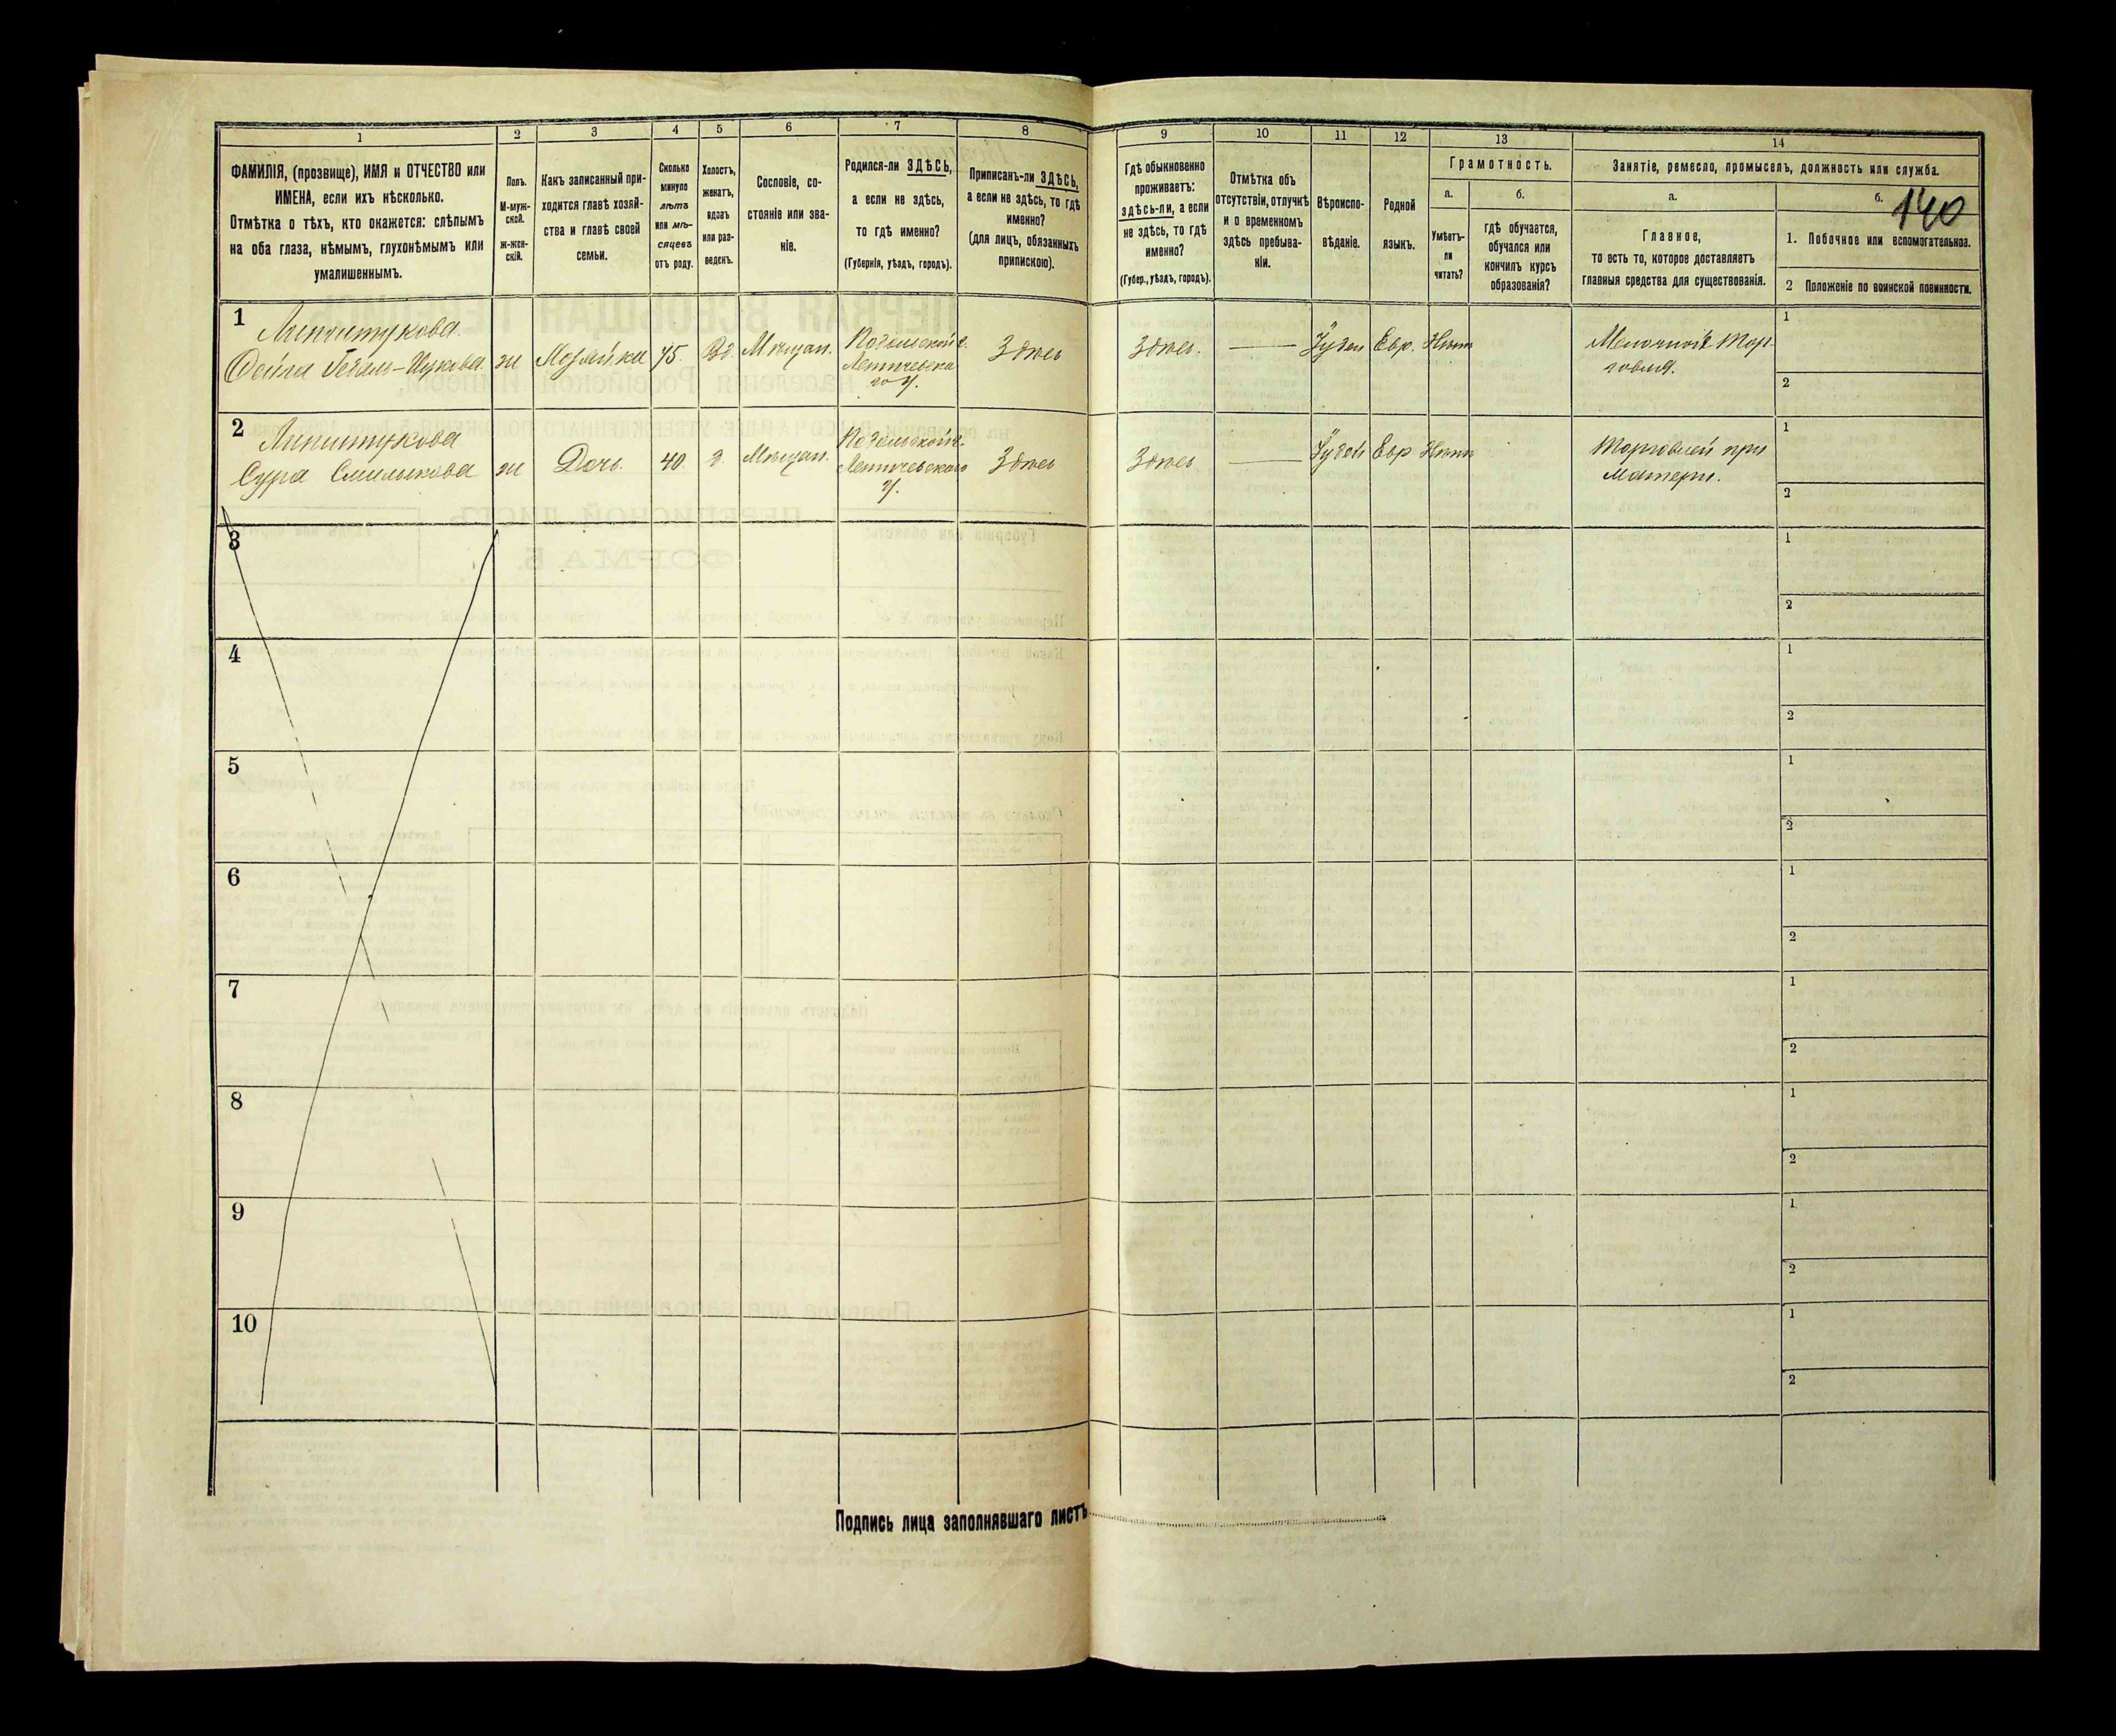 140
1
2
3
4
5
6
7
8
ФАМИЛІЯ, (прозвище), ИМЯ и ОТЧЕСТВО или
ИМЕНА, если ихъ нѣсколько.
Отмѣтка о тѣхъ, кто окажется: слѣпымъ
на оба глаза, нѣмымъ, глухонѣмымъ или
умалишеннымъ.
Полъ.
М-муж-
ской.
ж-жен-
скій.
Какъ записанный при-
ходится главѣ хозяй-
ства и главѣ своей
семьи.
Сколько
минуло
лѣтъ
или мѣ-
сяцевъ
отъ роду.
Холостъ,
женатъ,
вдовъ
или раз-
веденъ.
Сословіе, со-
стояніе или зва-
ніе.
Родился-ли ЗДѢСЬ,
а если не здѣсь,
то гдѣ именно?
(Губернія, уѣздъ, городъ).
Приписанъ-ли ЗДѢСЬ,
а если не здѣсь, то гдѣ
именно?
(для лицъ, обязанныхъ
припискою).
9
10
11
12
13
14
Гдѣ обыкновенно
проживаетъ:
здѣсь-ли, а если
не здѣсь, то гдѣ
именно?
(Губер., уѣздъ, городъ).
Отмѣтка объ
отсутствіи, отлучкѣ
и о временномъ
здѣсь пребыва-
ніи.
Вѣроиспо-
вѣданіе.
Родной
языкъ.
Грамотность.
а.
б.
Умѣетъ-
ли
читать?
гдѣ обучается,
обучался или
кончилъ курсъ
образованія?
Занятіе, ремесло, промыселъ, должность или служба.
а.
б.
Главное,
то есть то, которое доставляетъ
главныя средства для существованія.
1. Побочное или вспомогательное.
2 Положеніе по воинской повинности.
1
Фейга
ж
Хозяйка
75.
Вд.
Мѣщан.
Подольской г.
Летичевска
го у.
Здѣсь
Здѣсь.
Іудей
Евр.
Нѣтъ
Мелочной тор-
говля.
1
2
2
Сура
ж
Дочь.
40.
Мѣщан.
Подольской г.
Летичевского
у.
Здѣсь
Здѣсь
Іудей
Евр
Нѣтъ
Торговлей при
Матери.
1
2
3
1
2
4
1
2
5
1
2
6
1
2
7
1
2
8
1
2
9
1
2
10
1
2
Подпись лица заполнявшаго листъ